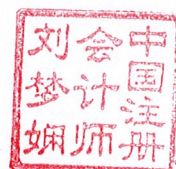 中国注册
会计师
刘梦娴